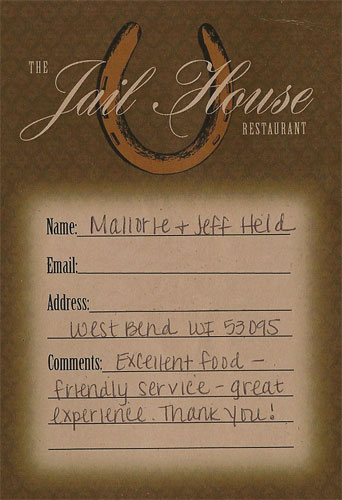 THE
Jail House
RESTAURANT
Name: Mallorie + Jeff Held
Email:
Address:
West Bend WI 53095
Comments: Excellent food -
friendly service - great
experience. Thank you!